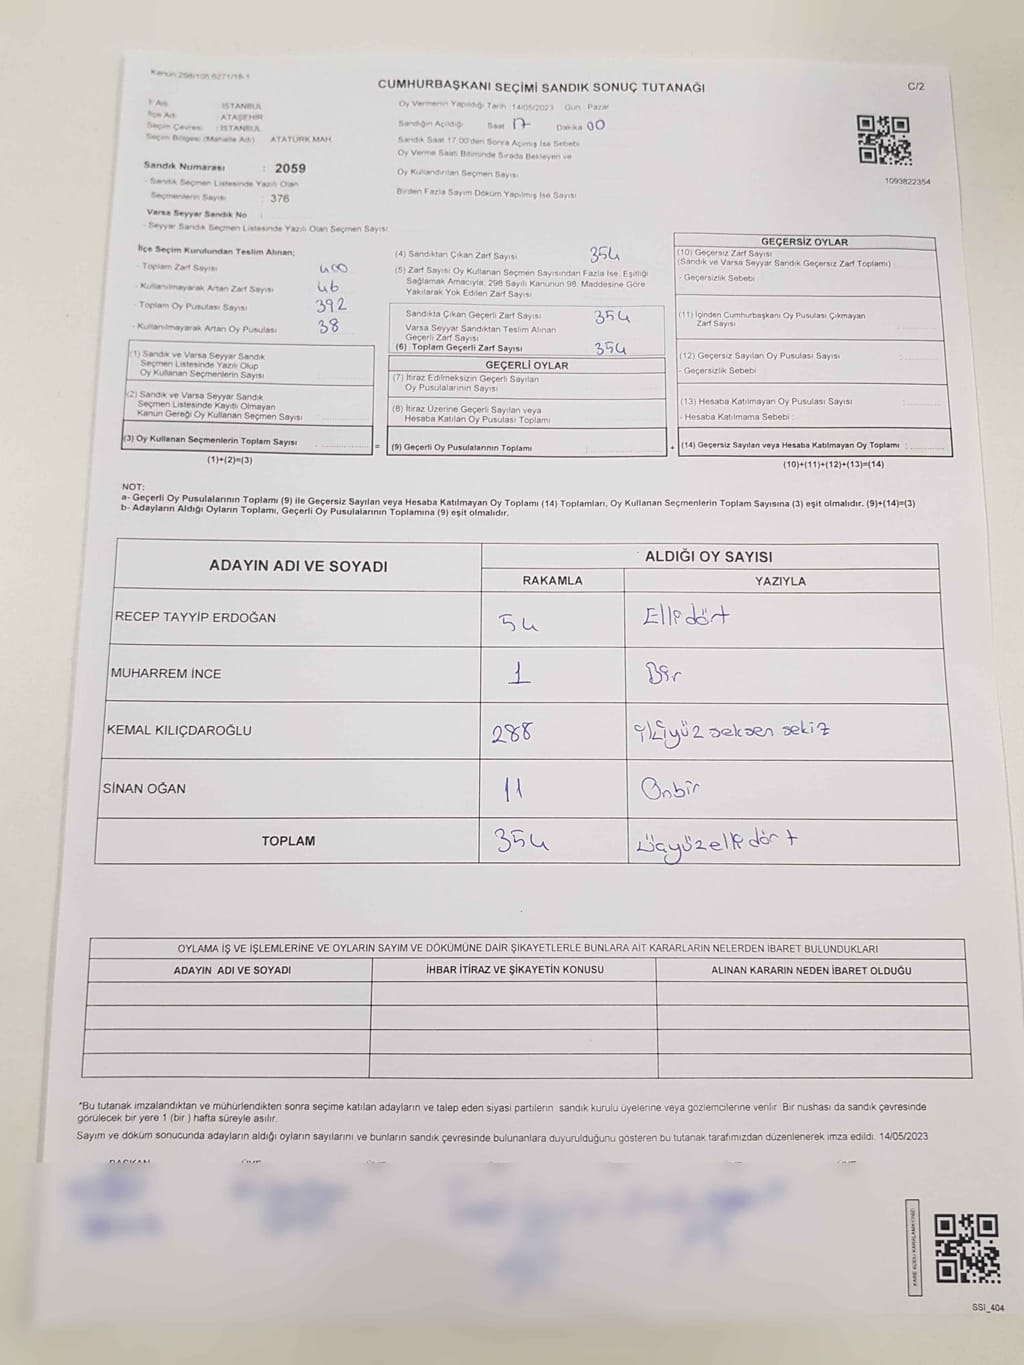 CUMHURBAŞKANI SEÇİMİ SANDIK SONUÇ TUTANAĞI
C/2
İl Adı : İSTANBUL
İlçe Adı : ATAŞEHİR
Seçim Çevresi : İSTANBUL
Seçim Bölgesi (Mahalle Adı) : ATATÜRK MAH
Sandık Numarası : 2059
- Sandık Seçmen Listesinde Yazılı Olan
Seçmenlerin Sayısı : 376
Varsa Seyyar Sandık No :
- Seyyar Sandık Seçmen Listesinde Yazılı Olan Seçmen Sayısı:
Oy Vermenin Yapıldığı Tarih : 14/05/2023 Gün : Pazar
Sandığın Açıldığı Saat 17 Dakika 00
Sandık Saat 17.00'den Sonra Açılmış İse Sebebi
Oy Verme Saati Bitiminde Sırada Bekleyen ve
Oy Kullandırılan Seçmen Sayısı
Birden Fazla Sayım Döküm Yapılmış İse Sayısı
1093822354
İlçe Seçim Kurulundan Teslim Alınan;
- Toplam Zarf Sayısı 400
- Kullanılmayarak Artan Zarf Sayısı 46
- Toplam Oy Pusulası Sayısı 392
- Kullanılmayarak Artan Oy Pusulası 38
(1) Sandık ve Varsa Seyyar Sandık
Seçmen Listesinde Yazılı Olup
Oy Kullanan Seçmenlerin Sayısı
(2) Sandık ve Varsa Seyyar Sandık
Seçmen Listesinde Kayıtlı Olmayan
Kanun Gereği Oy Kullanan Seçmen Sayısı
(3) Oy Kullanan Seçmenlerin Toplam Sayısı : =
(1)+(2)=(3)
(4) Sandıktan Çıkan Zarf Sayısı 354
(5) Zarf Sayısı Oy Kullanan Seçmen Sayısından Fazla İse, Eşitliği
Sağlamak Amacıyla; 298 Sayılı Kanunun 98. Maddesine Göre
Yakılarak Yok Edilen Zarf Sayısı
Sandıkta Çıkan Geçerli Zarf Sayısı 354
Varsa Seyyar Sandıktan Teslim Alınan
Geçerli Zarf Sayısı
(6) Toplam Geçerli Zarf Sayısı 354
GEÇERLİ OYLAR
(7) İtiraz Edilmeksizin Geçerli Sayılan
Oy Pusulalarının Sayısı
(8) İtiraz Üzerine Geçerli Sayılan veya
Hesaba Katılan Oy Pusulası Toplamı
(9) Geçerli Oy Pusulalarının Toplamı +
GEÇERSİZ OYLAR
(10) Geçersiz Zarf Sayısı
(Sandık ve Varsa Seyyar Sandık Geçersiz Zarf Toplamı)
- Geçersizlik Sebebi
(11) İçinden Cumhurbaşkanı Oy Pusulası Çıkmayan
Zarf Sayısı
(12) Geçersiz Sayılan Oy Pusulası Sayısı
- Geçersizlik Sebebi
(13) Hesaba Katılmayan Oy Pusulası Sayısı
- Hesaba Katılmama Sebebi :
(14) Geçersiz Sayılan veya Hesaba Katılmayan Oy Toplamı :
(10)+(11)+(12)+(13)=(14)
NOT:
a- Geçerli Oy Pusulalarının Toplamı (9) ile Geçersiz Sayılan veya Hesaba Katılmayan Oy Toplamı (14) Toplamları, Oy Kullanan Seçmenlerin Toplam Sayısına (3) eşit olmalıdır. (9)+(14)=(3)
b- Adayların Aldığı Oyların Toplamı, Geçerli Oy Pusulalarının Toplamına (9) eşit olmalıdır.
ADAYIN ADI VE SOYADI
ALDIĞI OY SAYISI
RAKAMLA YAZIYLA
RECEP TAYYİP ERDOĞAN 54 Elli dört
MUHARREM İNCE 1 Bir
KEMAL KILIÇDAROĞLU 288 ikiyüz seksen sekiz
SİNAN OĞAN 11 Onbir
TOPLAM 354 üçyüzelli dört
OYLAMA İŞ VE İŞLEMLERİNE VE OYLARIN SAYIM VE DÖKÜMÜNE DAİR ŞİKAYETLERLE BUNLARA AİT KARARLARIN NELERDEN İBARET BULUNDUKLARI
ADAYIN ADI VE SOYADI İHBAR İTİRAZ VE ŞİKAYETİN KONUSU ALINAN KARARIN NEDEN İBARET OLDUĞU
*Bu tutanak imzalandıktan ve mühürlendikten sonra seçime katılan adayların ve talep eden siyasi partilerin sandık kurulu üyelerine veya gözlemcilerine verilir. Bir nushası da sandık çevresinde
görülecek bir yere 1 (bir ) hafta süreyle asılır.
Sayım ve döküm sonucunda adayların aldığı oyların sayılarını ve bunların sandık çevresinde bulunanlara duyurulduğunu gösteren bu tutanak tarafımızdan düzenlenerek imza edildi. 14/05/2023
SSI_404